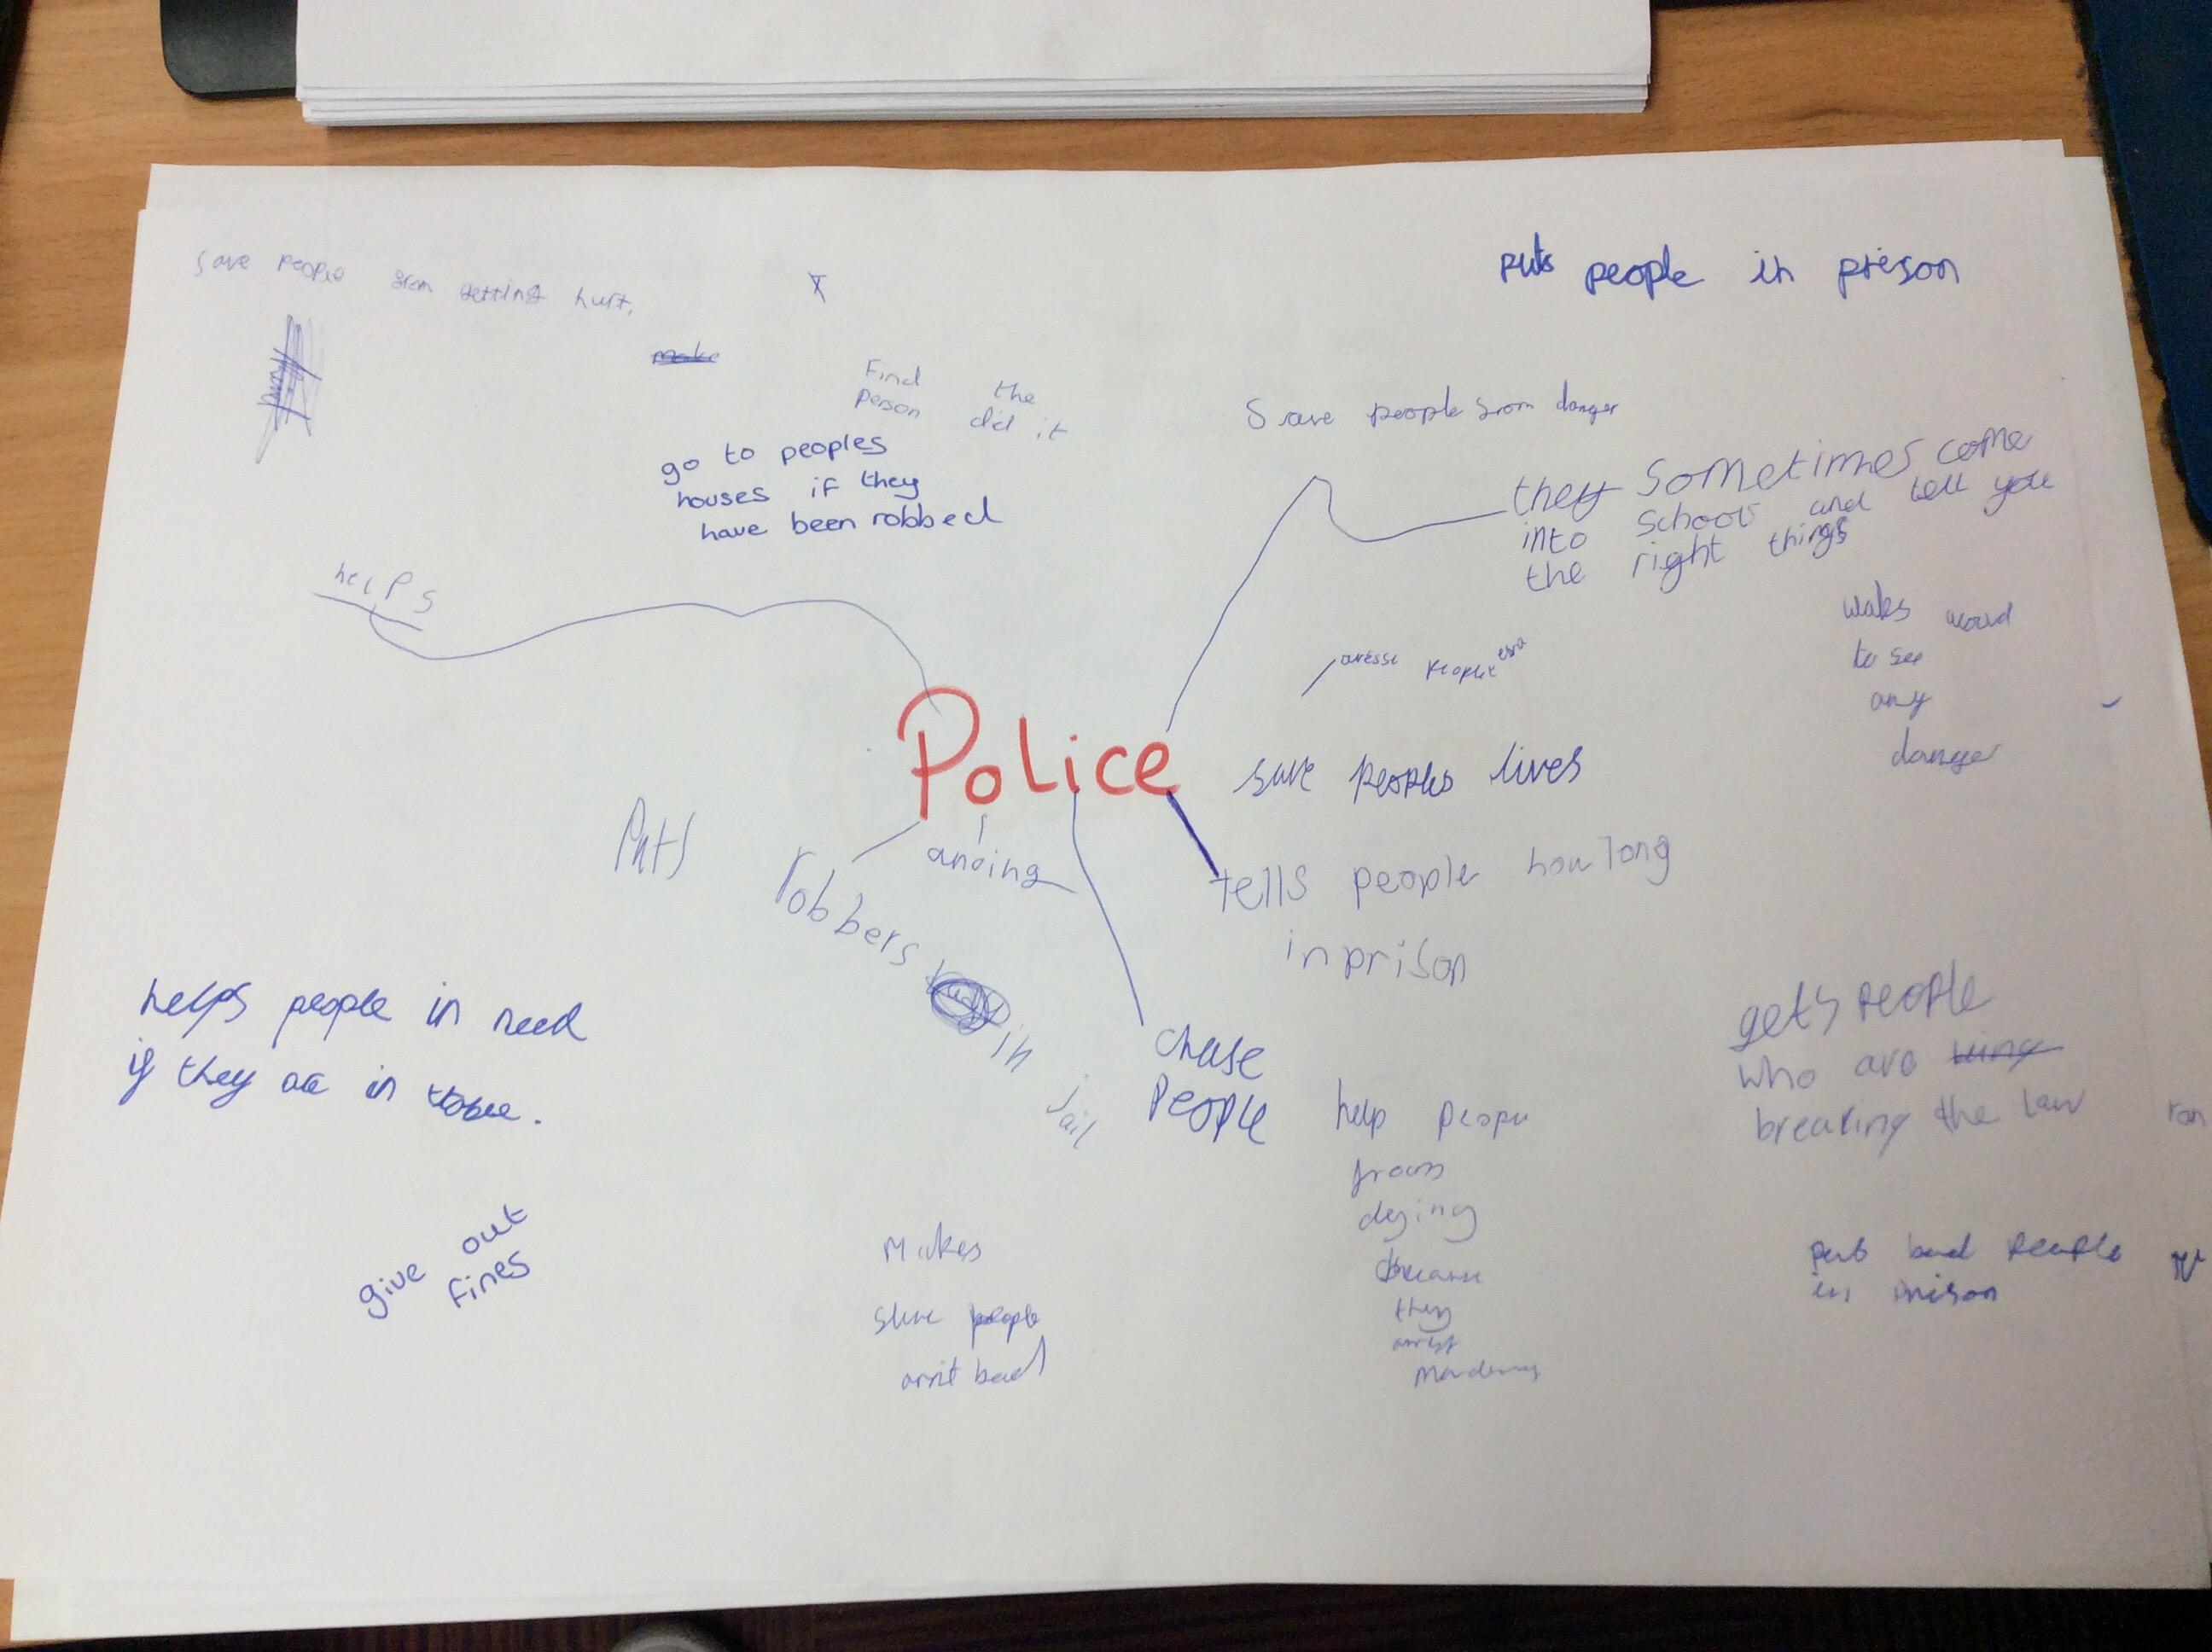 save people from getting hurt.
puts people in prison
make
Find the
person did it
go to peoples
houses if they
have been robbed
Save people from danger
they sometimes come
into school and tell you
the right things
helps
people
walks
to see
any
danger
Police
save peoples lives
Puts
robbers
in
jail
anoing
tells people how long
in prison
chase
people
helps people in need
if they are in
gets people
who are
breaking the law
ran
help people
from
dying
because
they
arrest
give out
fines
Makes
people
bad
puts bad people
in prison